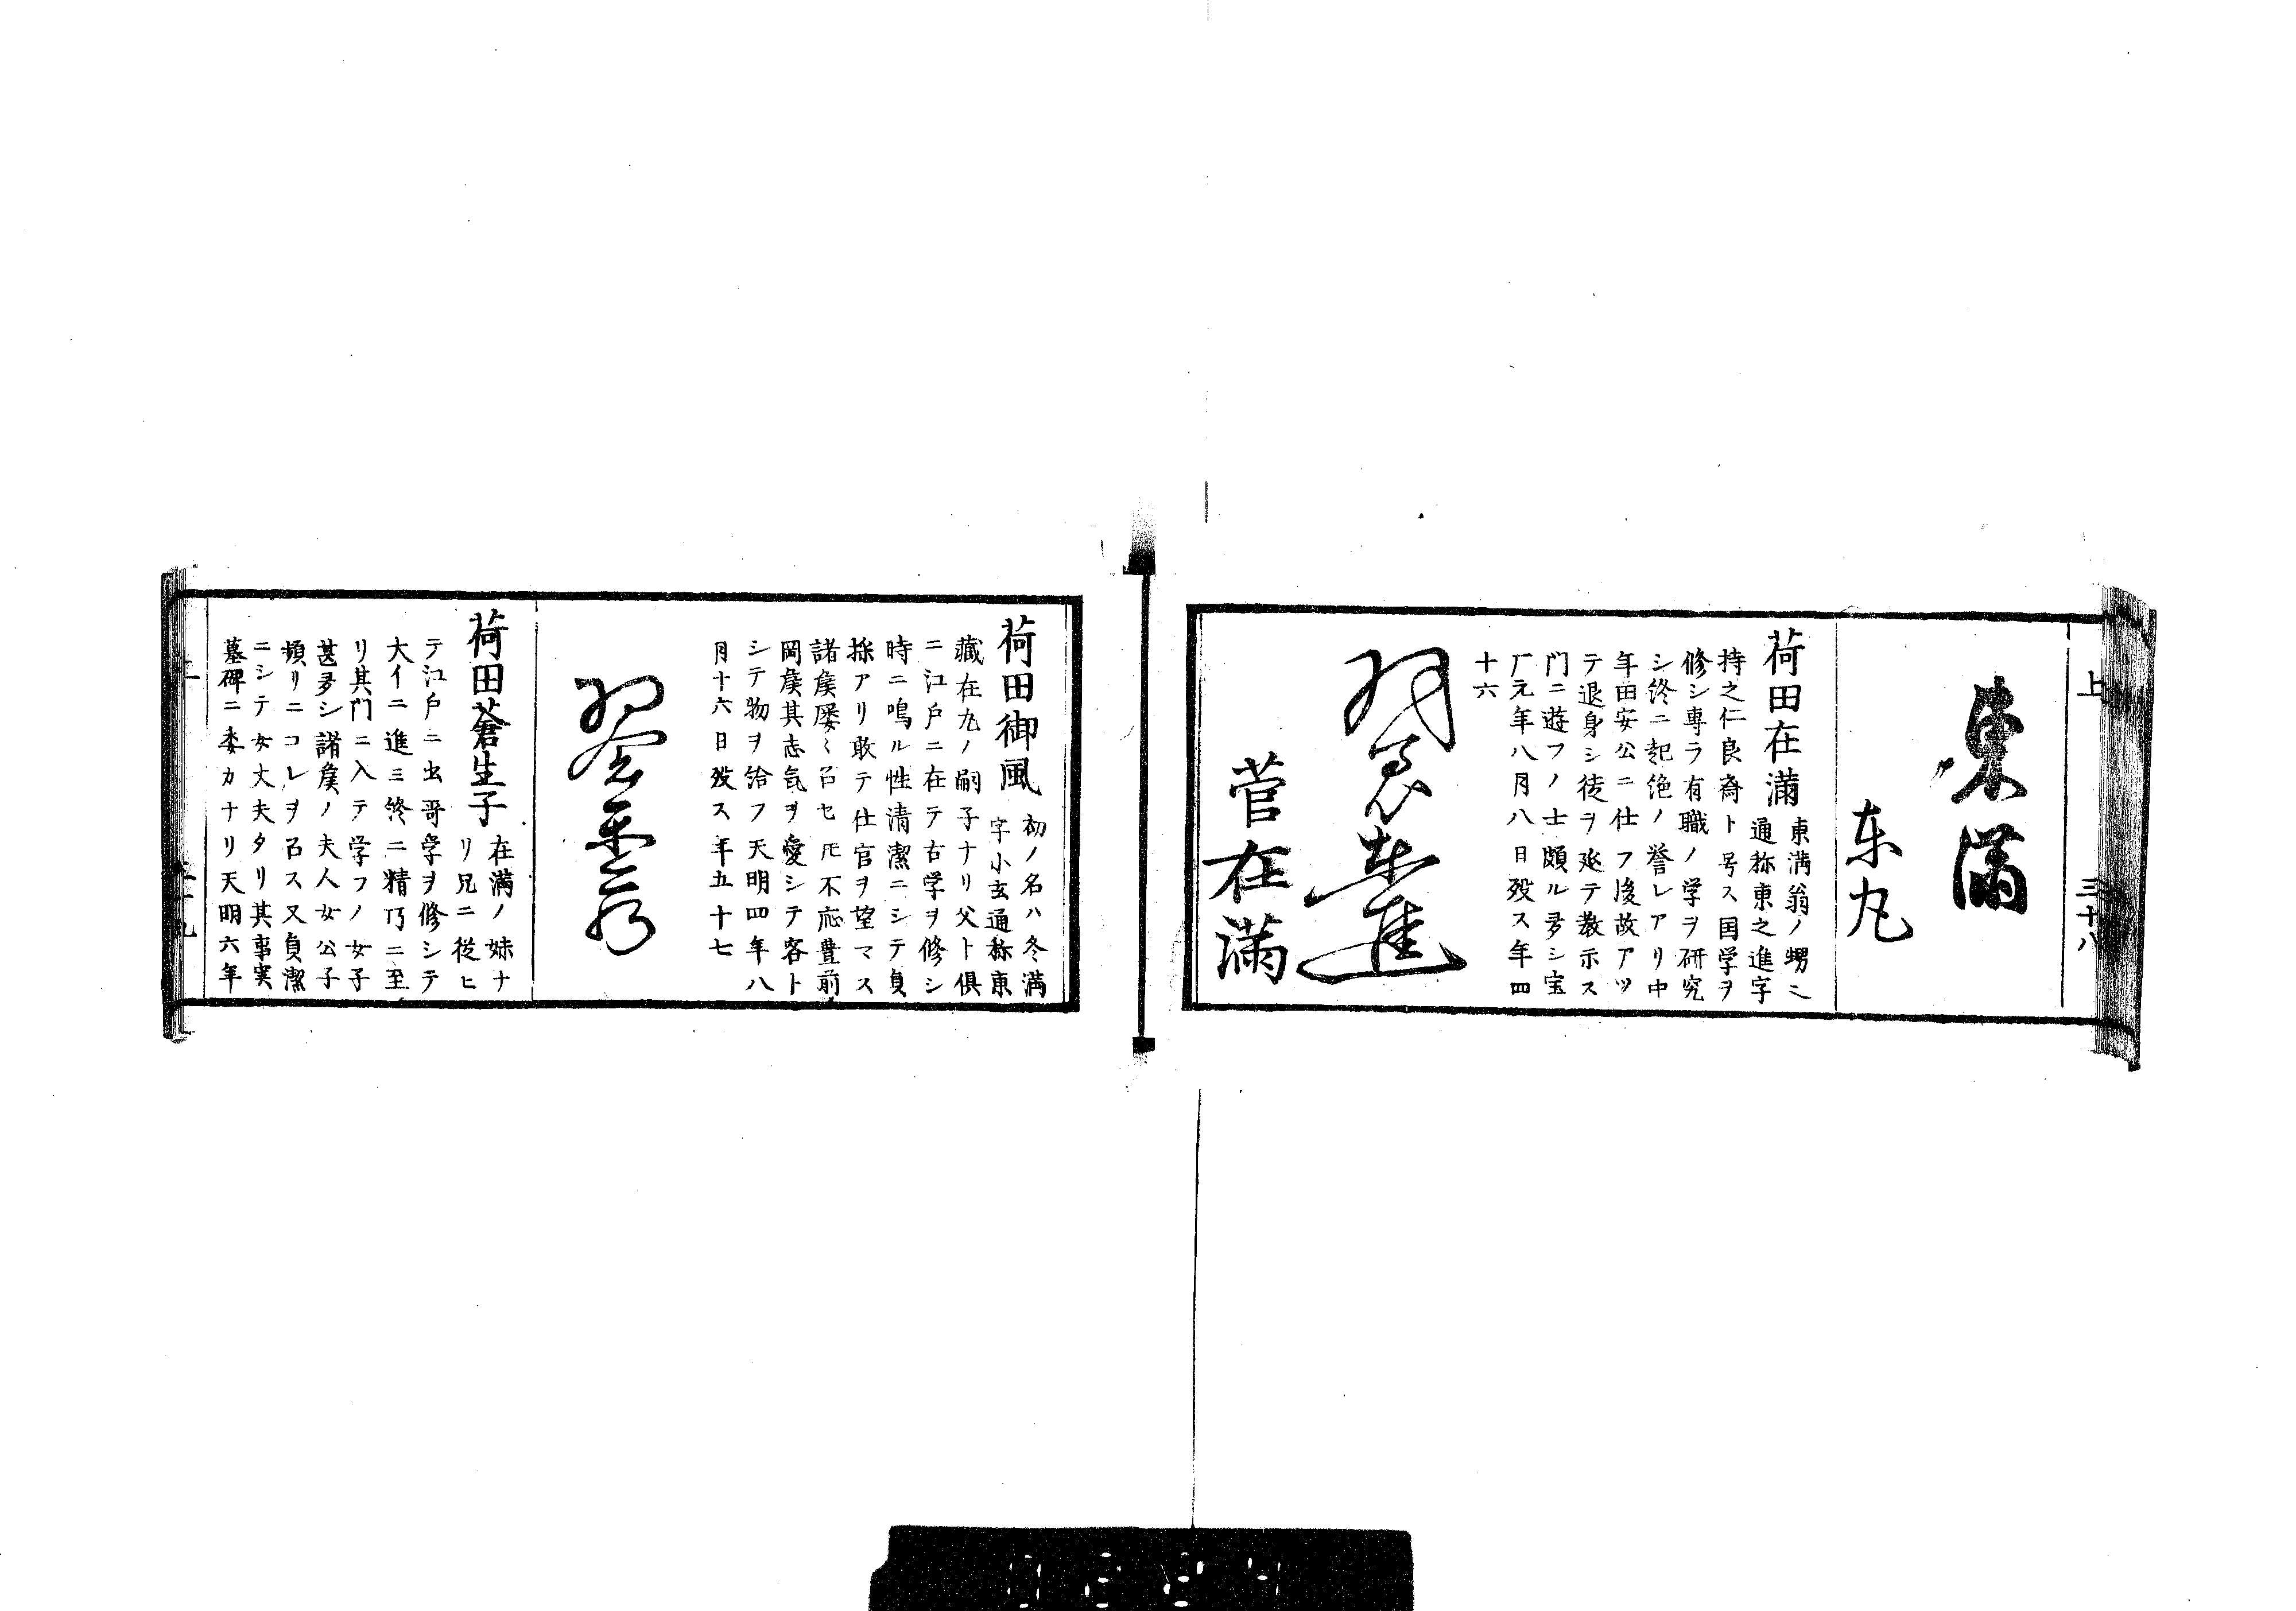 上 三十八
東滿
东丸
荷田在滿 東滿翁ノ甥ニ
通称東之進字
持之仁良斎ト号ス国学ヲ
修シ専ラ有職ノ学ヲ研究
シ終ニ起絶ノ誉レアリ中
年田安公ニ仕フ後故アツ
テ退身シ徒ヲ延テ教示ス
门ニ遊フノ士頗ル多シ宝
厂元年八月八日歿ス年四
十六
東進
菅在滿
荷田御風 初ノ名ハ冬滿
字小玄通称東
藏在九ノ嗣子ナリ父ト俱
ニ江戸ニ在テ古学ヲ修シ
時ニ鳴ル性清潔ニシテ貞
操アリ敢テ仕官ヲ望マス
諸矦屡〻召セ𪜈不応豊前ノ
岡矦其志気ヲ愛シテ客ト
シテ物ヲ給フ天明四年八
月十六日歿ス年五十七
荷田蒼生子 在滿ノ妹ナ
リ兄ニ従ヒ
テ江戸ニ出哥学ヲ修シテ
大イニ進ミ終ニ精乃ニ至
リ其门ニ入テ学フノ女子
甚多シ諸矦ノ夫人女公子
頻リニコレヲ召ス又貞潔
ニシテ女丈夫タリ其事実
墓碑ニ委カナリ天明六年